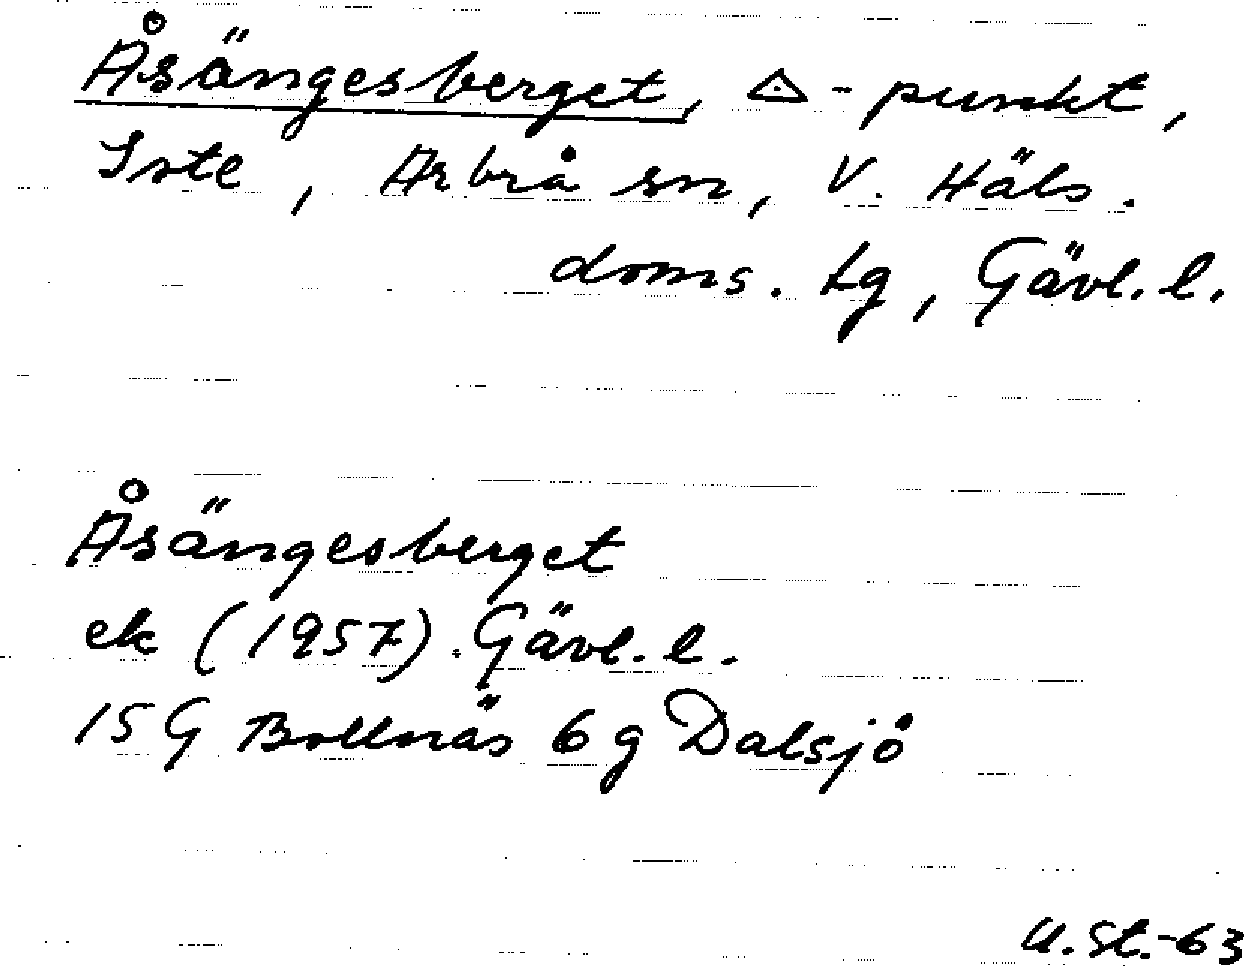 Åsängesberget, △-punkt,
Iste, Arbrå sn, V. Häls.
doms. tg, Gävl. l.
Åsängesberget
ek (1957). Gävl. l.
15 G Bollnäs 6 g Dalsjö
U. St.-63